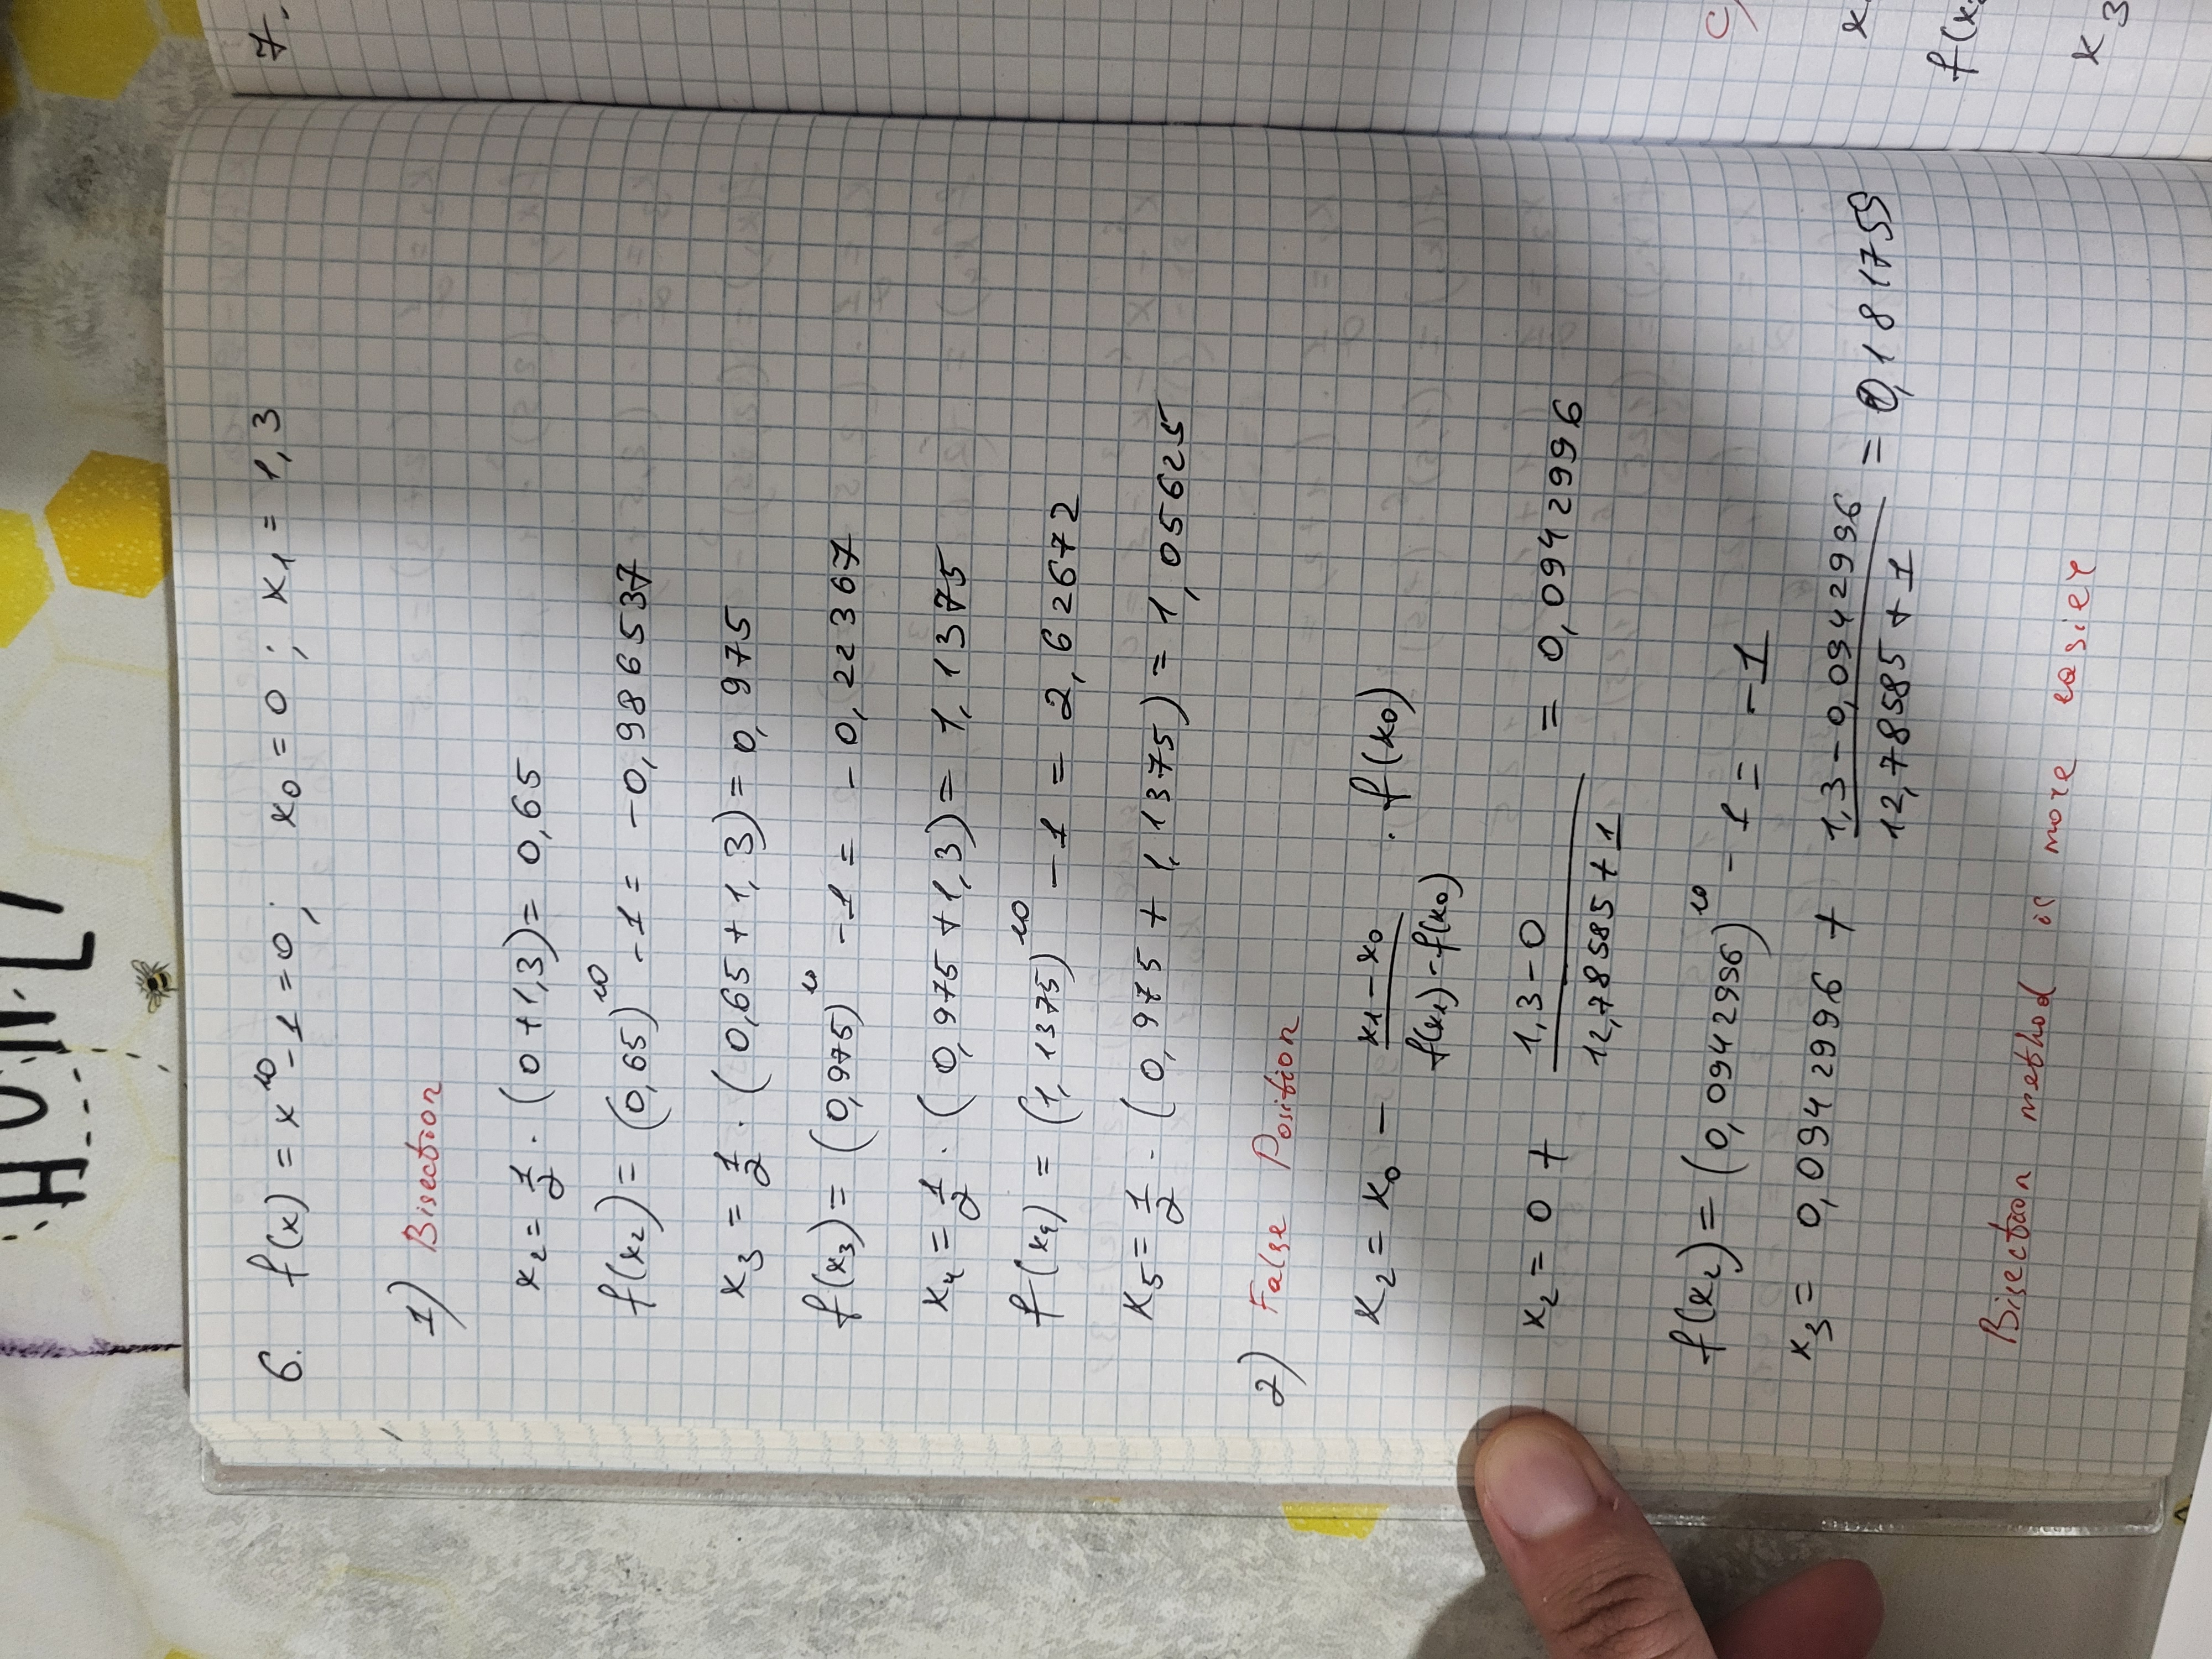 HONEY
6. f(x) = x^10 - 1 = 0; x0 = 0; x1 = 1,3
7.
1) Bisection
x2 = 1/2 · (0 + 1,3) = 0,65
f(x2) = (0,65)^10 - 1 = -0,986537
x3 = 1/2 · (0,65 + 1,3) = 0,975
f(x3) = (0,975)^10 - 1 = -0,22367
x4 = 1/2 · (0,975 + 1,3) = 1,1375
f(x4) = (1,1375)^10 - 1 = 2,62672
x5 = 1/2 · (0,975 + 1,1375) = 1,05625
2) False Position
x2 = x0 - (x1 - x0)/(f(x1) - f(x0)) · f(x0)
x2 = 0 + (1,3 - 0)/(12,78585 + 1) = 0,0942996
f(x2) = (0,0942996)^10 - 1 = -1
c)
x3 = 0,0942996 + (1,3 - 0,0942996)/(12,78585 + 1) = 0,181759
x
f(x2
Bisection method is more easier
x3